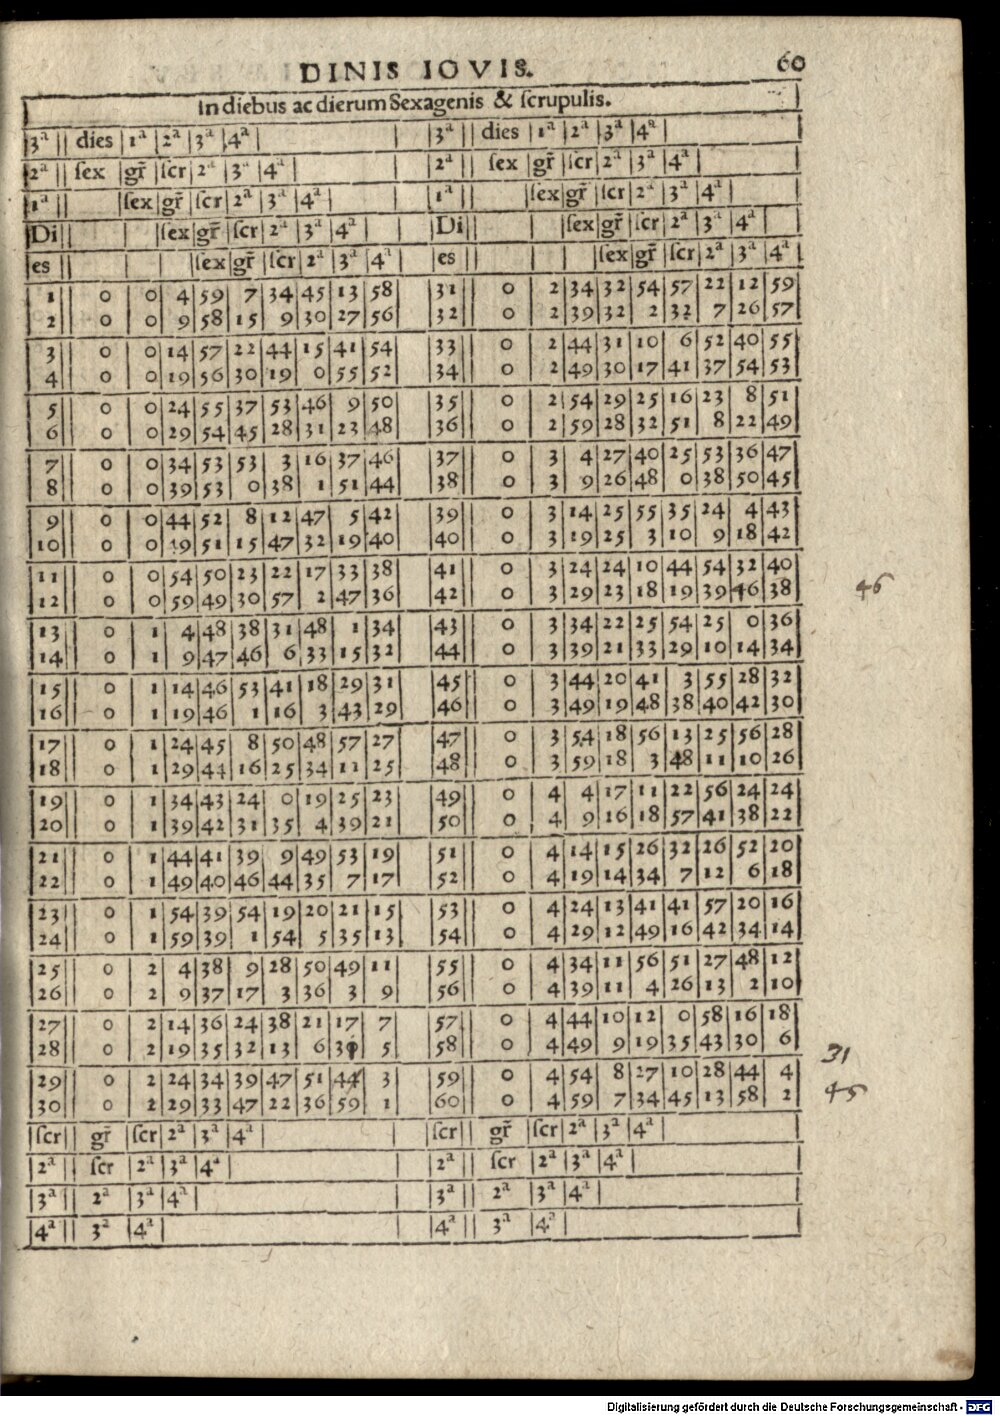 DINIS IOVIS. 60
In diebus ac dierum Sexagenis & scrupulis.
3ª dies 1ª 2ª 3ª 4ª 3ª dies 1ª 2ª 3ª 4ª
2ª sex gr̃ scr 2ª 3ª 4ª 2ª sex gr̃ scr 2ª 3ª 4ª
1ª sex gr̃ scr 2ª 3ª 4ª 1ª sex gr̃ scr 2ª 3ª 4ª
Di sex gr̃ scr 2ª 3ª 4ª Di sex gr̃ scr 2ª 3ª 4ª
es sex gr̃ scr 2ª 3ª 4ª es sex gr̃ scr 2ª 3ª 4ª
1 0 0 4 59 7 34 45 13 58 31 0 2 34 32 54 57 22 12 59
2 0 0 9 58 15 9 30 27 56 32 0 2 39 32 2 32 7 26 57
3 0 0 14 57 22 44 15 41 54 33 0 2 44 31 10 6 52 40 55
4 0 0 19 56 30 19 0 55 52 34 0 2 49 30 17 41 37 54 53
5 0 0 24 55 37 53 46 9 50 35 0 2 54 29 25 16 23 8 51
6 0 0 29 54 45 28 31 23 48 36 0 2 59 28 32 51 8 22 49
7 0 0 34 53 53 3 16 37 46 37 0 3 4 27 40 25 53 36 47
8 0 0 39 53 0 38 1 51 44 38 0 3 9 26 48 0 38 50 45
9 0 0 44 52 8 12 47 5 42 39 0 3 14 25 55 35 24 4 43
10 0 0 49 51 15 47 32 19 40 40 0 3 19 25 3 10 9 18 42
11 0 0 54 50 23 22 17 33 38 41 0 3 24 24 10 44 54 32 40
12 0 0 59 49 30 57 2 47 36 42 0 3 29 23 18 19 39 46 38 46
13 0 1 4 48 38 31 48 1 34 43 0 3 34 22 25 54 25 0 36
14 0 1 9 47 46 6 33 15 32 44 0 3 39 21 33 29 10 14 34
15 0 1 14 46 53 41 18 29 31 45 0 3 44 20 41 3 55 28 32
16 0 1 19 46 1 16 3 43 29 46 0 3 49 19 48 38 40 42 30
17 0 1 24 45 8 50 48 57 27 47 0 3 54 18 56 13 25 56 28
18 0 1 29 44 16 25 34 11 25 48 0 3 59 18 3 48 11 10 26
19 0 1 34 43 24 0 19 25 23 49 0 4 4 17 11 22 56 24 24
20 0 1 39 42 31 35 4 39 21 50 0 4 9 16 18 57 41 38 22
21 0 1 44 41 39 9 49 53 19 51 0 4 14 15 26 32 26 52 20
22 0 1 49 40 46 44 35 7 17 52 0 4 19 14 34 7 12 6 18
23 0 1 54 39 54 19 20 21 15 53 0 4 24 13 41 41 57 20 16
24 0 1 59 39 1 54 5 35 13 54 0 4 29 12 49 16 42 34 14
25 0 2 4 38 9 28 50 49 11 55 0 4 34 11 56 51 27 48 12
26 0 2 9 37 17 3 36 3 9 56 0 4 39 11 4 26 13 2 10
27 0 2 14 36 24 38 21 17 7 57 0 4 44 10 12 0 58 16 18
28 0 2 19 35 32 13 6 5 58 0 4 49 9 19 35 43 30 6 31
29 0 2 24 34 39 47 51 44 3 59 0 4 54 8 27 10 28 44 4
30 0 2 29 33 47 22 36 59 1 60 0 4 59 7 34 45 13 58 2 45
scr gr̃ scr 2ª 3ª 4ª scr gr̃ scr 2ª 3ª 4ª
2ª scr 2ª 3ª 4ª 2ª scr 2ª 3ª 4ª
3ª 2ª 3ª 4ª 3ª 2ª 3ª 4ª
4ª 3ª 4ª 4ª 3ª 4ª
Digitalisierung gefördert durch die Deutsche Forschungsgemeinschaft - DFG